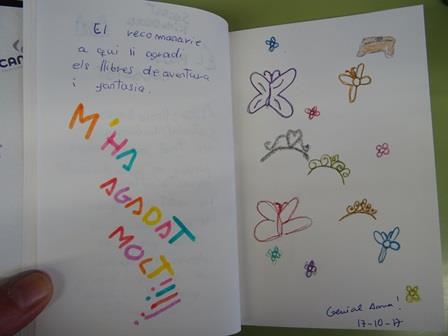 El recomanaria
a qui li agradi
els llibres de aventura
i fantasia.
M'HA
AGADAT
MOLT!!!!
CAN
Genial Anna!
17-10-17